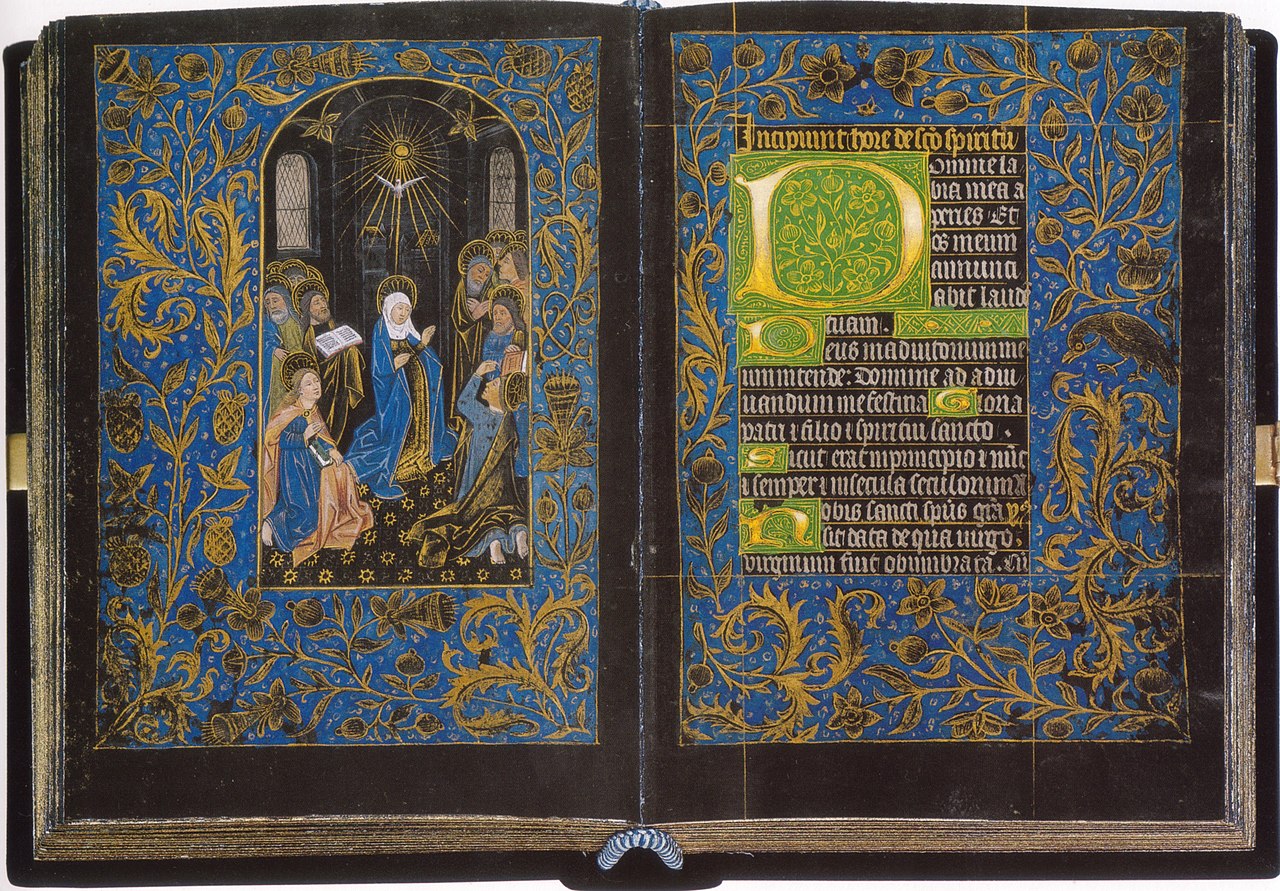 Incipiunt hore de sco spiritu
Domine la
bia mea a
peries. Et
os meum
annunci
abit laude
tuam.
Deus in adiutorium me
um intende. Domine ad adiu
uandum me festina Gloria
patri ⁊ filio ⁊ spiritui sancto.
Sicut erat in principio ⁊ nūc
⁊ semper ⁊ in secula seculorum
Nobis sancti sp̄us gra
sit data de qua uirgo
virginum fuit obumbrata. Cū